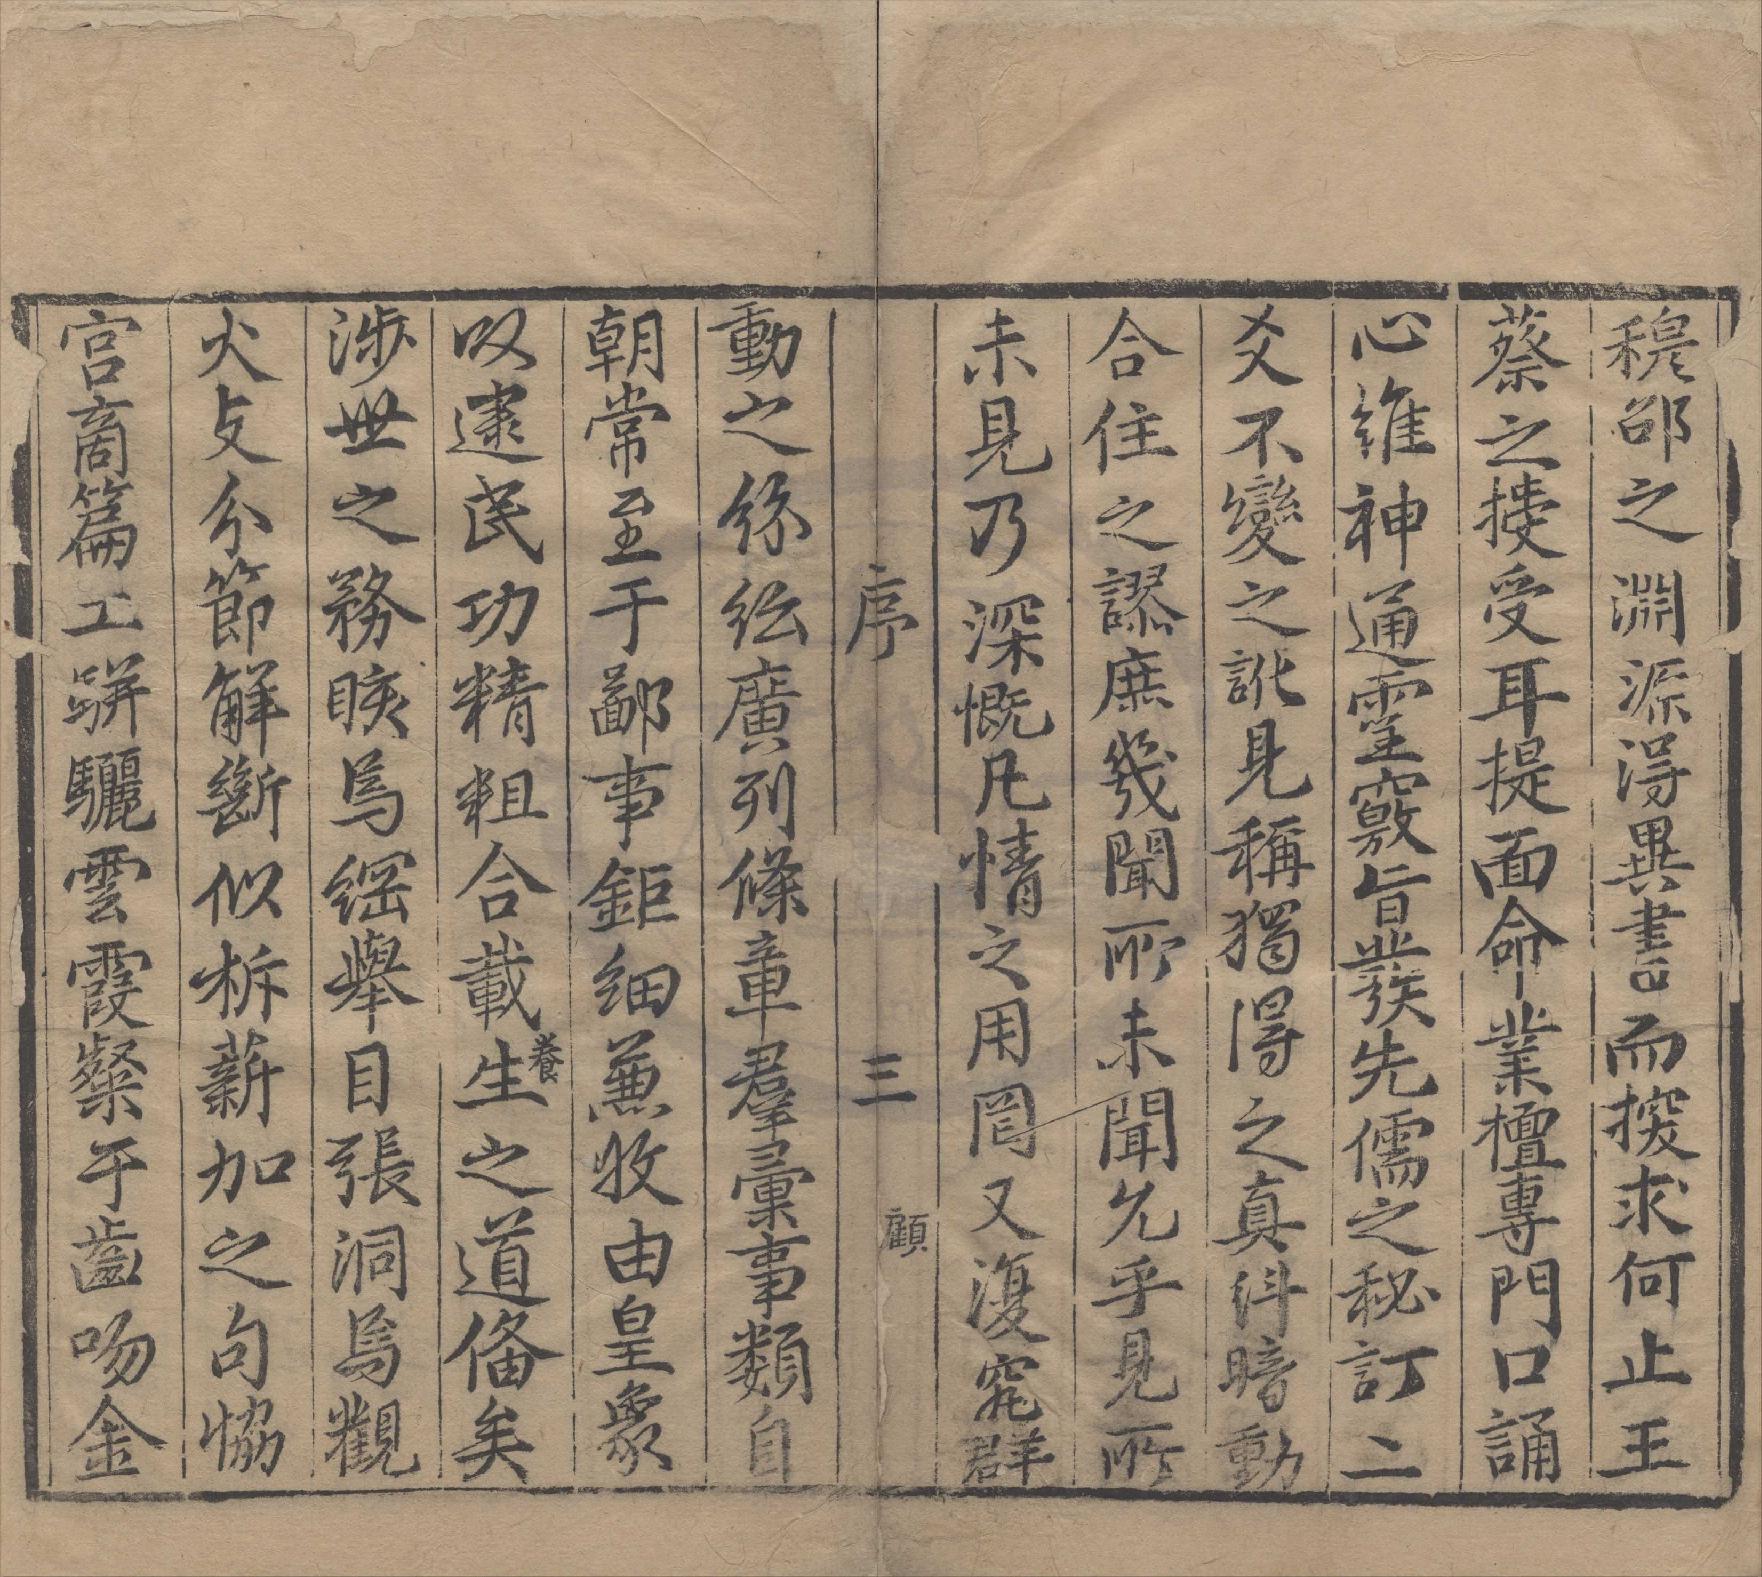 穆邵之淵源得異書而探求何止王
蔡之接受耳提面命業擅專門口誦
心維神通靈竅旨發先儒之秘訂二
爻不變之訛見稱獨得之真純暗動
合住之謬庶幾聞所未聞允乎見所
未見乃深慨凡情之用罔又復窺群
序 三 顧
動之紛紜廣列條章羣彙事類自
朝常至于鄙事鉅細兼收由皇象
以逮民功精粗合載養生之道備矣
涉世之務賅焉綱舉目張洞焉觀
火支分節解斷似析薪加之句協
宮商篇工駢驪雲霞粲于齒吻金